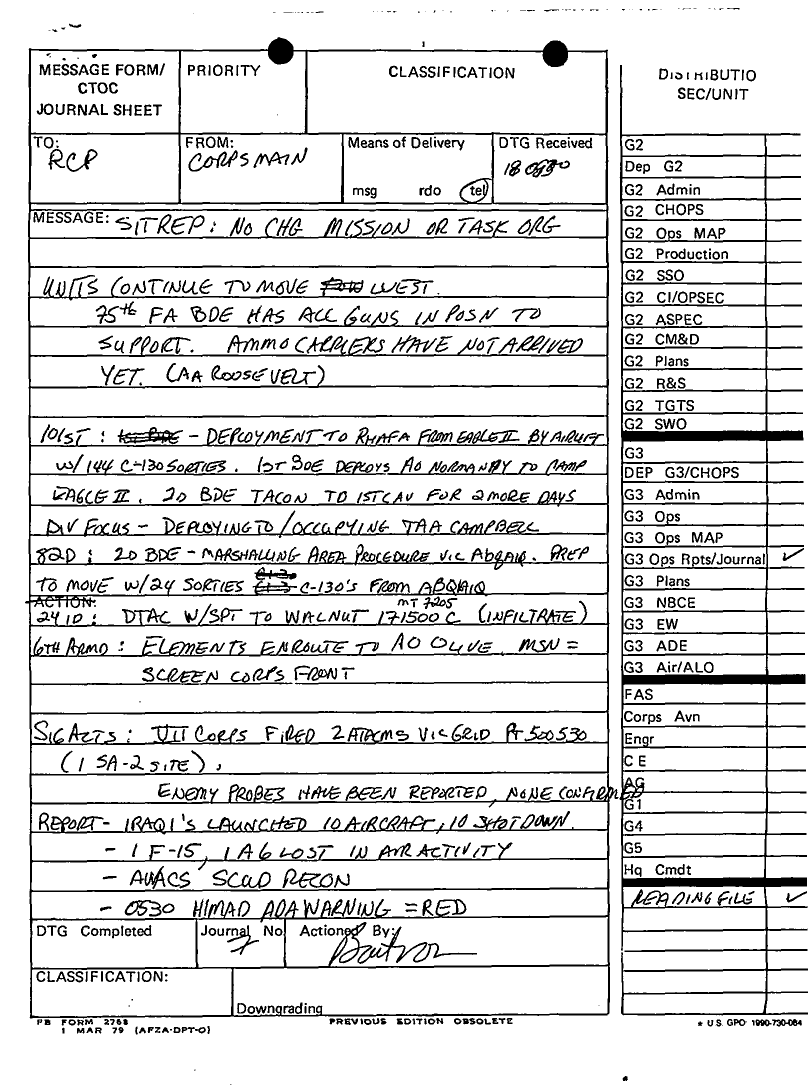 MESSAGE FORM/
CTOC
JOURNAL SHEET
PRIORITY
CLASSIFICATION
TO:
RCP
FROM:
CORPS MAIN
Means of Delivery
msg rdo tel
DTG Received
18
MESSAGE: SITREP: NO CHG MISSION OR TASK ORG
UNITS CONTINUE TO MOVE WEST.
75th FA BDE HAS ALL GUNS IN POSN TO
SUPPORT. AMMO CARRIERS HAVE NOT ARRIVED
YET. (AA ROOSEVELT)
101ST: 1st BDE - DEPLOYMENT TO RHAFA FROM EAGLE II BY AIRLIFT
W/ 144 C-130 SORTIES. 1ST BDE DEPLOYS AO NORMANDY TO CAMP
EAGLE II. 2D BDE TACON TO 1STCAV FOR 2 MORE DAYS
DIV FOCUS - DEPLOYING TO/OCCUPYING TAA CAMPBELL
82D: 2D BDE - MARSHALLING AREA PROCEDURE VIC ABQAIQ. PREP
TO MOVE W/24 SORTIES C-130'S FROM ABQAIQ
ACTION:
MT 7205
24 ID: DTAC W/SPT TO WALNUT 171500 C (INFILTRATE)
6TH ARMD: ELEMENTS ENROUTE TO AO OLIVE. MSN =
SCREEN CORPS FRONT
SIG ACTS: VII CORPS FIRED 2 ATACMS VIC GRID PT 500530
(1 SA-2 SITE),
ENEMY PROBES HAVE BEEN REPORTED, NONE CONFIRMED
REPORT- IRAQI'S LAUNCHED 10 AIRCRAFT, 10 SHOTDOWN.
- 1 F-15, 1 A6 LOST IN AIR ACTIVITY
- AWACS SCUD RECON
- 0530 HIMAD ADA WARNING = RED
DTG Completed
Journal No
7
Actioned By:
CLASSIFICATION:
Downgrading
FB FORM 2768
1 MAR 79 (AFZA-DPT-O)
PREVIOUS EDITION OBSOLETE
DISTRIBUTIO
SEC/UNIT
G2
Dep G2
G2 Admin
G2 CHOPS
G2 Ops MAP
G2 Production
G2 SSO
G2 CI/OPSEC
G2 ASPEC
G2 CM&D
G2 Plans
G2 R&S
G2 TGTS
G2 SWO
G3
DEP G3/CHOPS
G3 Admin
G3 Ops
G3 Ops MAP
G3 Ops Rpts/Journal ✓
G3 Plans
G3 NBCE
G3 EW
G3 ADE
G3 Air/ALO
FAS
Corps Avn
Engr
C E
AG
G1
G4
G5
Hq Cmdt
READING FILE ✓
* U S GPO 1990-730-084